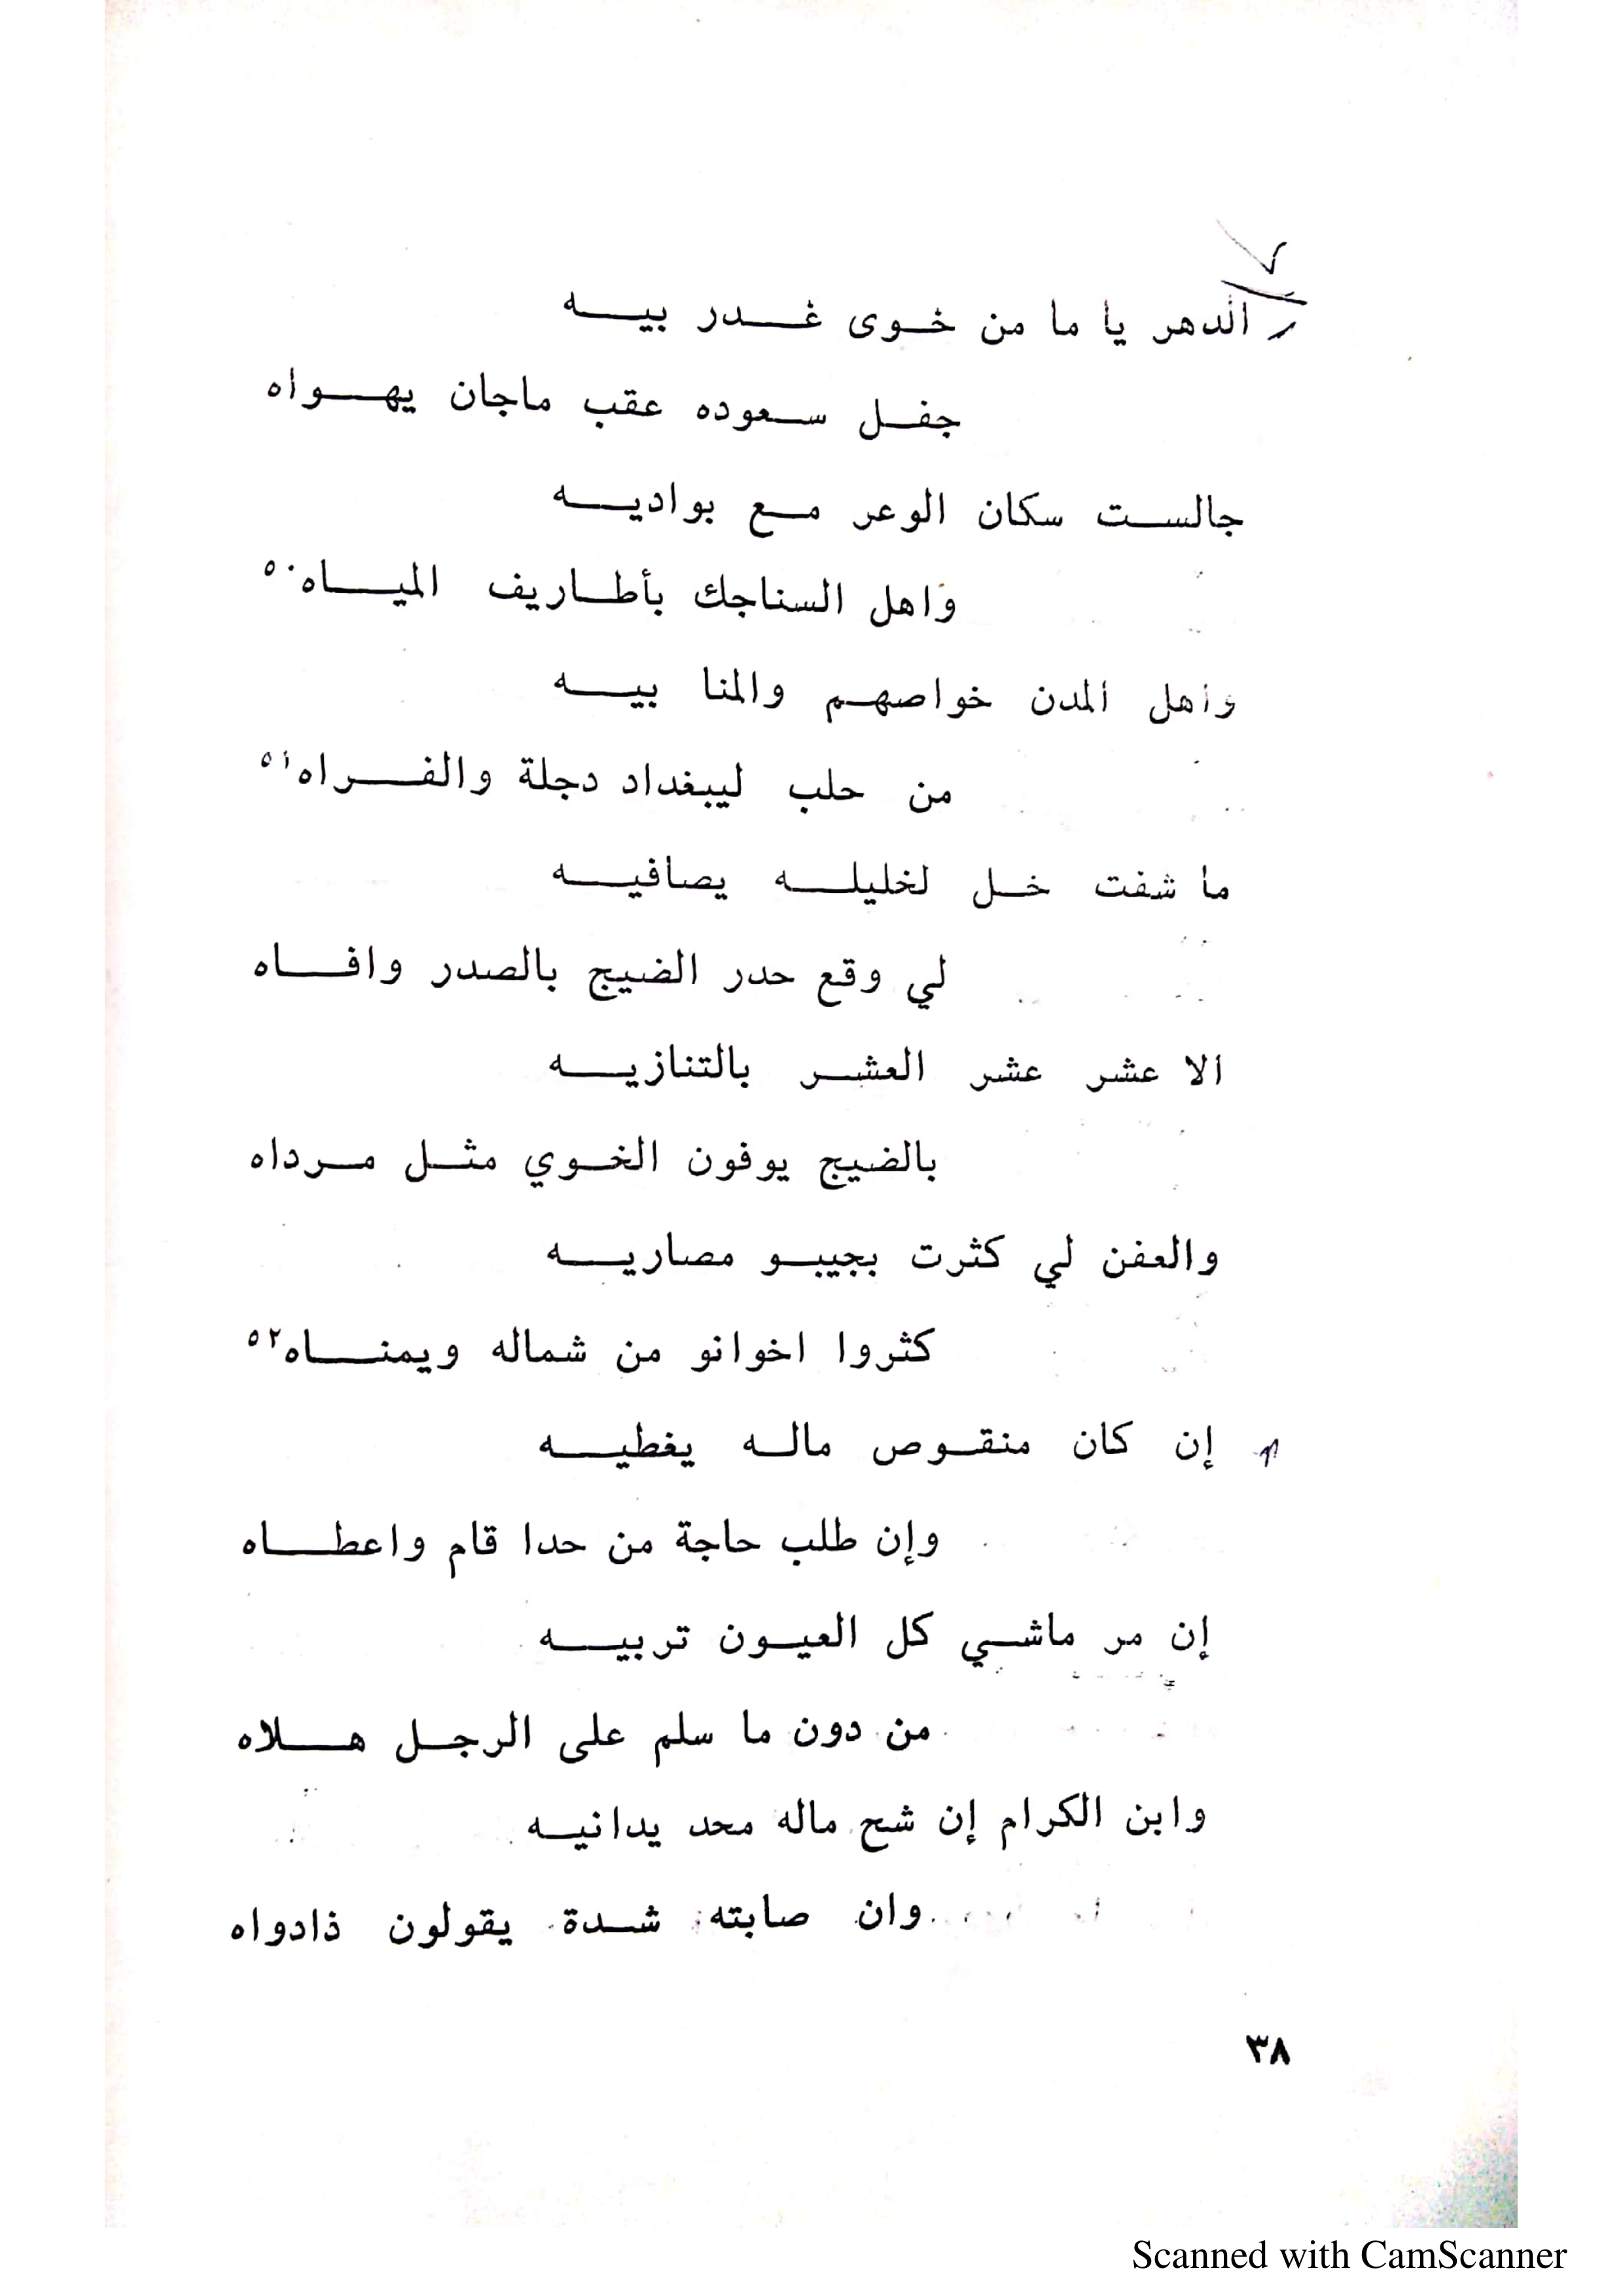 الدهر يا ما من خوى غدر بيه
جفل سعوده عقب ماجان يهواه
جالست سكان الوعر مع بواديه
واهل السناجك بأطاريف المياه٥٠
وأهل المدن خواصهم والمنا بيه
من حلب ليبغداد دجلة والفراه٥١
ما شفت خل لخليله يصافيه
لي وقع حدر الضيج بالصدر وافاه
الا عشر عشر العشر بالتنازيه
بالضيج يوفون الخوي مثل مرداه
والعفن لي كثرت بجيبو مصاريه
كثروا اخوانو من شماله ويمناه٥٢
إن كان منقوص ماله يغطيه
وإن طلب حاجة من حدا قام واعطاه
إن مر ماشي كل العيون تربيه
من دون ما سلم على الرجل هلاه
وابن الكرام إن شح ماله محد يدانيه
وان صابته شدة يقولون ذادواه
٣٨
Scanned with CamScanner